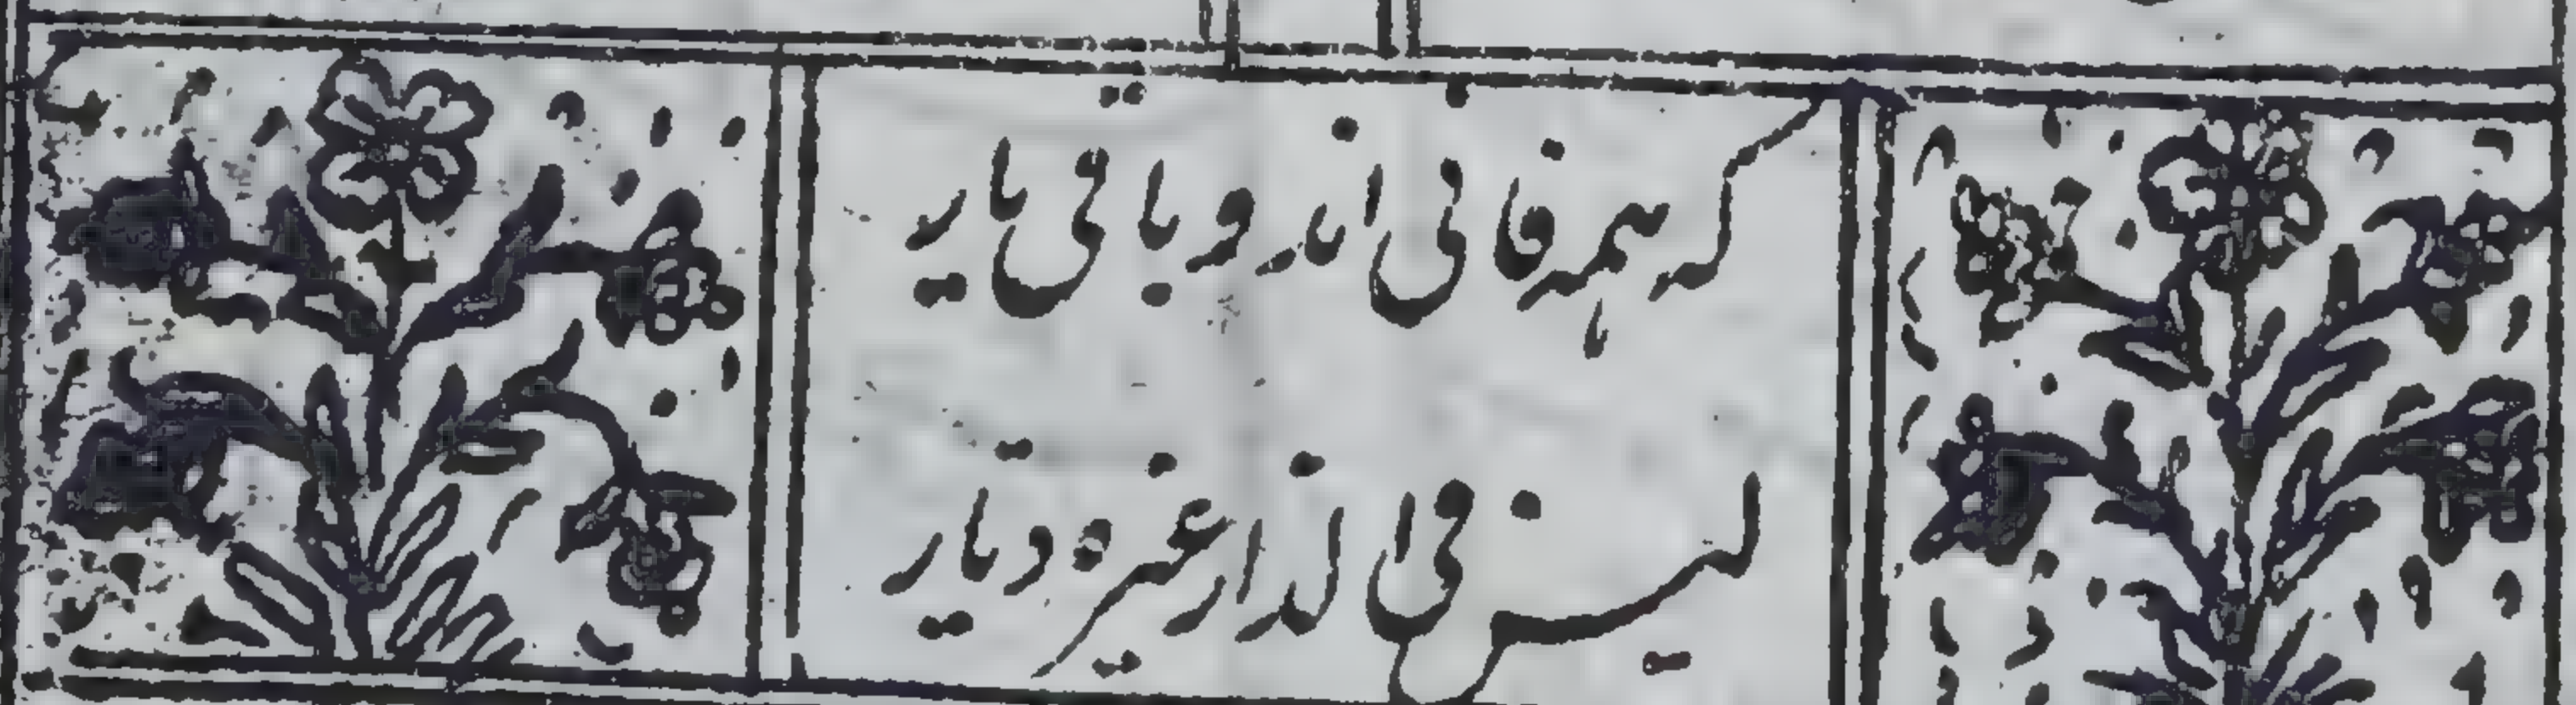 که همه فانی اند و باقی یار
لیس فی الدار غیره دیار